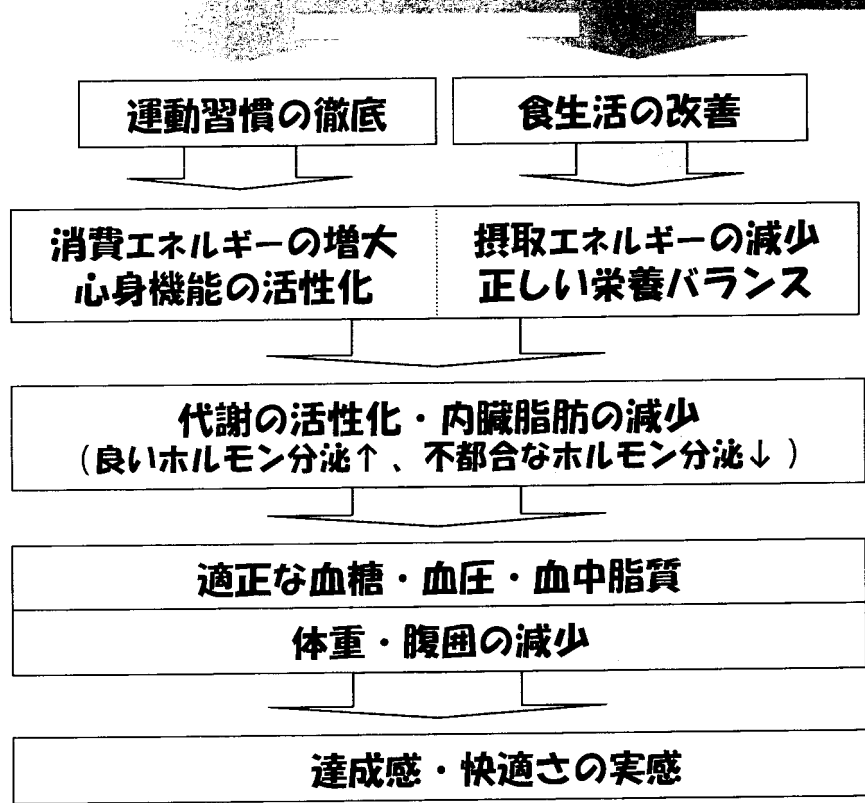 運動習慣の徹底
食生活の改善
消費エネルギーの増大
心身機能の活性化
摂取エネルギーの減少
正しい栄養バランス
代謝の活性化・内臓脂肪の減少
(良いホルモン分泌↑、不都合なホルモン分泌↓)
適正な血糖・血圧・血中脂質
体重・腹囲の減少
達成感・快適さの実感